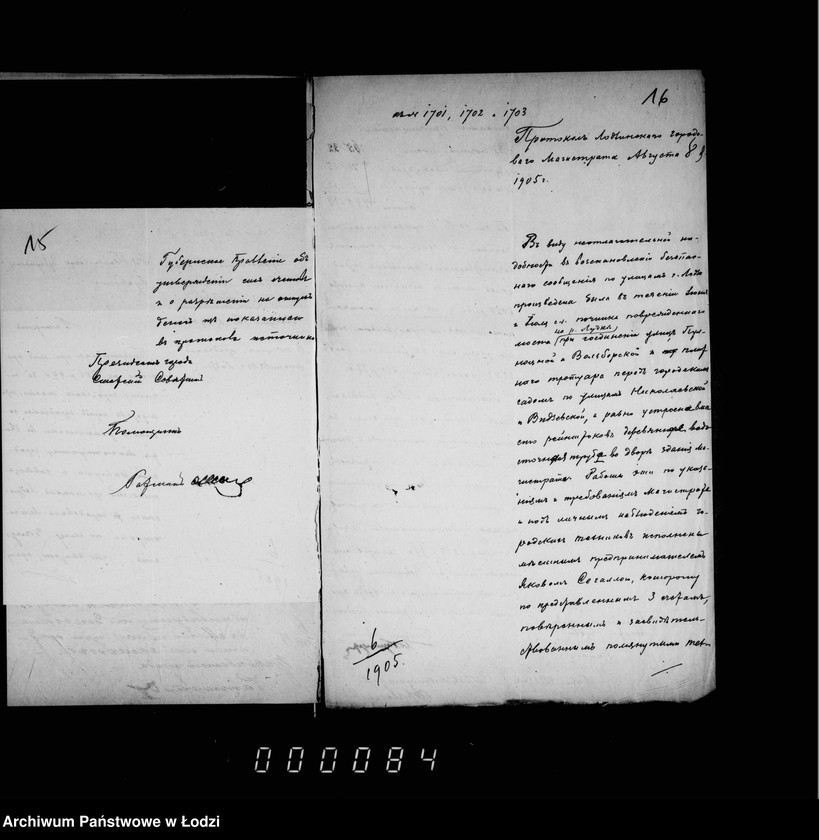 15
Губернское Правление объ
утверждении сихъ счетовъ
и о разрѣшеніи
въ протоколѣ источника
Президентъ города
Статскій Совѣтникъ
16
1701, 1702 и 1703
Протоколъ Лодзинскаго городо-
вого Магистрата Августа 8
1905 г.
Въ виду неотлагательной на-
добности въ возстановленіи безопас-
наго сообщенія по улицамъ г. Лодзи
произведена была въ теченіи Іюня
и Іюля с.г. починка поврежденнаго
моста (при соединеніи улицъ
на р. Лудкѣ
и Вольборской и
наго тротуара передъ городскимъ
садомъ по улицамъ Николаевской
и Видзевской, а равно устроена
деревянная водо
сточная труба во дворѣ зданія ма-
гистрата. Работы эти по указа-
ніямъ и требованіямъ Магистрата
и подъ личнымъ наблюденіемъ го-
родскихъ техниковъ исполнены
мѣстнымъ предпринимателемъ
Яковомъ Сегаллой, которому
по представленнымъ 3 счетамъ,
повѣреннымъ и засвидѣтель-
ствованнымъ помянутыми тех-
6
1905
000084
Archiwum Państwowe w Łodzi